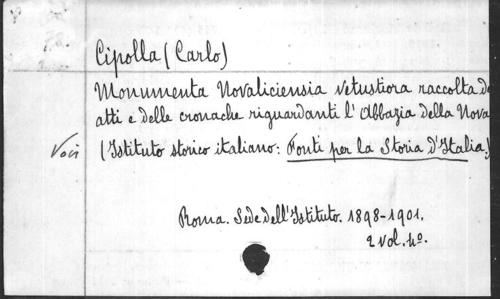 Cipolla (Carlo)
Monumenta Novaliciensia vetustiora raccolta de
atti e delle cronache riguardanti l'Abbazia della Nova
(Istituto storico italiano: Fonti per la Storia d'Italia)
Roma. Sede dell'Istituto. 1898-1901.
2 vol. 4o.